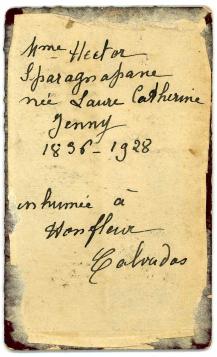 Mme Hector
Sparagnapane
née Laure Catherine
Jenny
1836-1928
inhumée à
Honfleur
Calvados